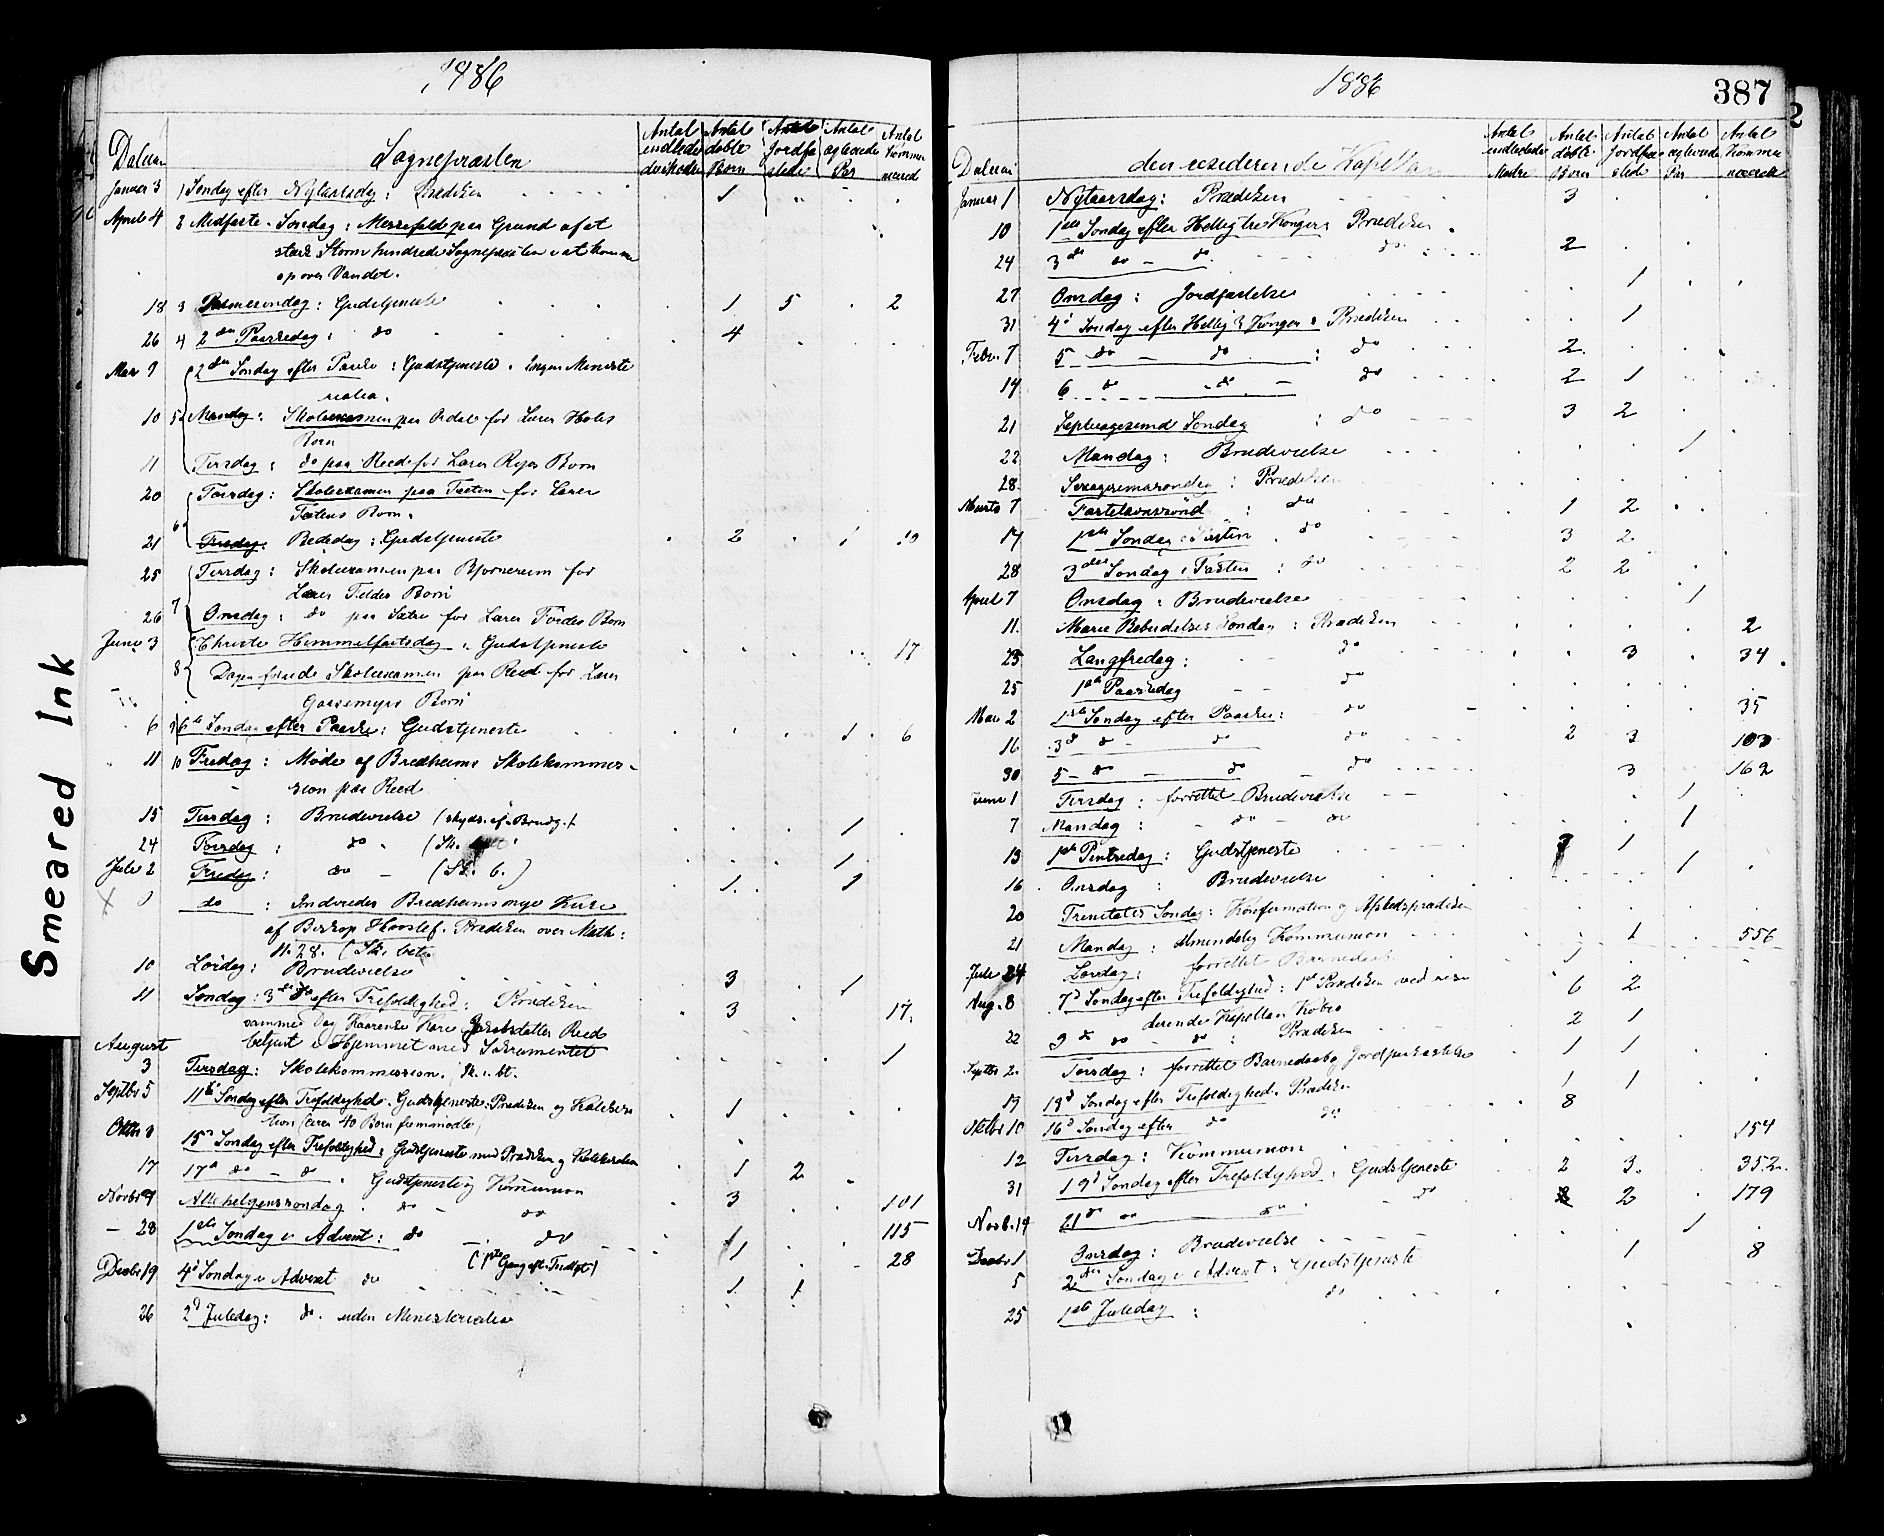 Smeared Ink
1886
Datum
Sognepræsten
Antal indledede Barselkoner
Antal døbte Børn
Antal Jordfæstede
Antal ægteviede Par
Antal Kommunicered
Januar 3 1 Søndag efter Nytaarsdag: Prædiken 1
April 4 2 Midfaste Søndag: Messefald paa Grund af at
stærk Storm hindrede Sognepræsten i at komme
op over Vandet.
18 3 Palmesøndag: Gudstjeneste 1 5 2
26 4 2den Paaskedag: do 4
Mai 9 2den Søndag efter Paaske: Gudstjeneste. Ingen Ministe
rialia.
10 5 Mandag: Skoleexamen paa Ardal for Lærer Holes
Børn
11 Tirsdag: do paa Reed for Lærer Rojes Børn
20 Torsdag: Skoleexamen paa Tveten for Lærer
Tvetens Børn.
21 6 Fredag: Bededag: Gudstjeneste 2 1 10
25 Tirsdag: Skoleexamen paa Bjørnereim for
Lærer Børn
26 7 Onsdag: do paa Sætre for Lærer Børn
Juni 3 Christi Himmelfartsdag: Gudstjeneste 17
8 Dagen forud Skoleexamen paa Reed for Lærer
Gaasemyrs Børn
6 9 6te Søndag efter Paaske: Gudstjeneste 1 6
11 10 Fredag: Møde af Bredheims Skolekommis-
sion paa Reed
15 Tirsdag: Brudevielse (skyds. af Brudg.) 1
24 Torsdag: do (Sk. 1
Juli 2 Fredag: do - (Sk. b.) 1 1
9 do: Indviedes Bredheims nye Kirke
af Biskop Hvoslef. Prædiken over Math:
11.28. (Sk. bet.
10 Lørdag: Brudevielse 3 1
11 Søndag: 3die do efter Trefoldighed: Prædiken 3 17.
samme Dag Kaarenke Kari Jakobsdatter Reed
betjent i Hjemmet med Sakramentet 1
August
3 Tirsdag: Skolekommission. Sk. bt.
Septbr 5 11te Søndag efter Trefoldighed. Gudstjeneste: Prædiken og Katekisa 1
tion (circa 40 Børn fremmødte)
Oktbr 3 15de Søndag efter Trefoldighed: Gudstjeneste med Prædiken og Katekisation
17 17de do - do. Gudstjeneste og Kommunion 1 2
Novbr 7 Allehelgenssøndag. do - do 3 101
- 28 1ste Søndag i Advent: do - do 1 115
Decbr 19 4de Søndag i Advent do (1ste Gang eft. Tredjept) 1 28
26 2d Juledag: do. uden Ministerialia 1 1
1886
387
2
Datum
den residerende Kapellan
Antal indledede Mødre
Antal døbte Børn
Antal Jordfæstede
Antal ægteviede Par
Antal Kommunicerede
Januar 1 Nytaarsdag: Prædiken 3
10 1ste Søndag efter Hellig tre Konger: Prædiken
24 3de do - do do 2
27 Onsdag: Jordfæstelse 1
31 4d Søndag efter Hellig 3 Konger: Prædiken 1
Febr. 7 5 - do - do : do 2
14 6 do - do - do 2 1
21 Septuagesimæ Søndag : do 3 2
22 Mandag: Brudevielse 1
28 Sexagesimæsøndag: Prædiken
Marts 7 Fastelavnssønd : do 1 2
14 1ste Søndag i Fasten. do 3 2
28 3die Søndag i Fasten : do 2 2
April 7 Onsdag: Brudevielse 1
11. Mariæ Bebudelses Søndag: Prædiken 2
23 Langfredag: do 3 34
25 1ste Paaskedag - - do
Mai 2 1ste Søndag efter Paaske: do 35
16 3d do - do do 2 3 103
30 5 - do - do - do 3 162
Juni 1 Tirsdag: forrettet Brudevielse 1
7 Mandag: - do - do 1
13 1ste Pintsedag: Gudstjeneste 1
16 Onsdag: Brudevielse 1
20 Trinitatis Søndag: Konfirmation og Afskedsprædiken
21 Mandag: Almindelig Kommunion 1 556
Juli 24 Lørdag: forrettet Barnedaab 1
Aug. 8 7d Søndag efter Trefoldighed: 1st Prædiken ved resi 6 2
derende Kapellan Kobro
22 9de do - do : Prædiken 2 1
Septbr 2. Torsdag: forrettet Barnedaab og Jordpaakastelse 1 1
19 13d Søndag efter Trefoldighed. Prædiken 1 1
Oktbr 10 16d Søndag efter do do 8
12 Tirsdag: Kommunion 154
31 19d Søndag efter Trefoldighed: Gudstjeneste 2 3 352
Novb. 14 21de do do - do 2 2 179
Decbr 1 Onsdag: Brudevielse 1
5 2den Søndag i Advent: Gudstjeneste 1 8
25 1ste Juledag : do